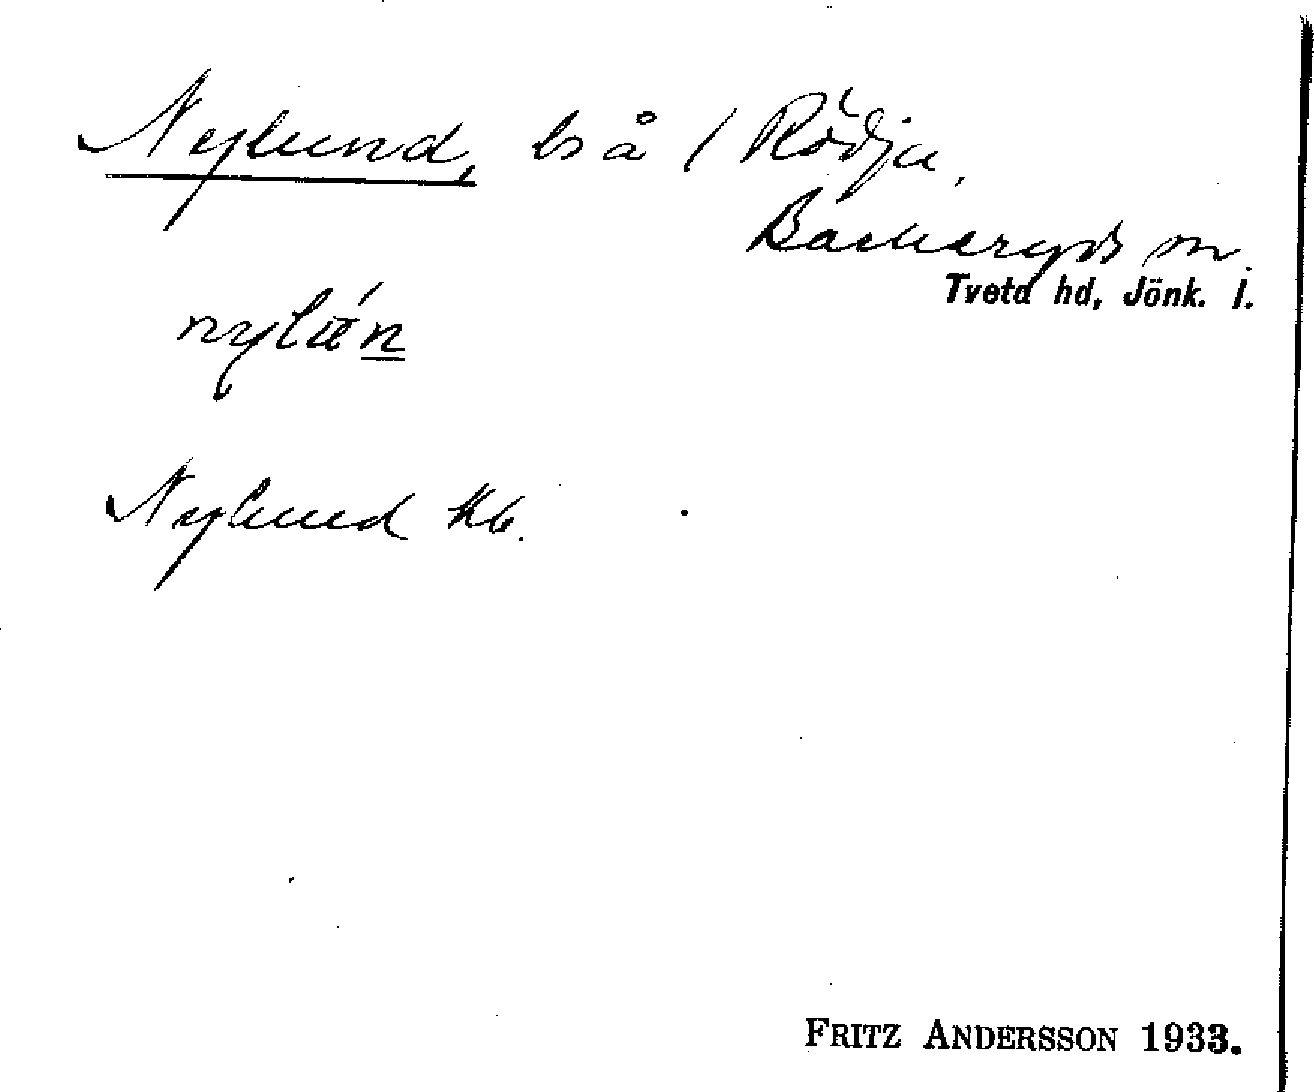 Nylund, ls å / Rödja,
Backaryds sn.
Tveta hd, Jönk. l.
nylún
Nylund kb.
FRITZ ANDERSSON 1933.